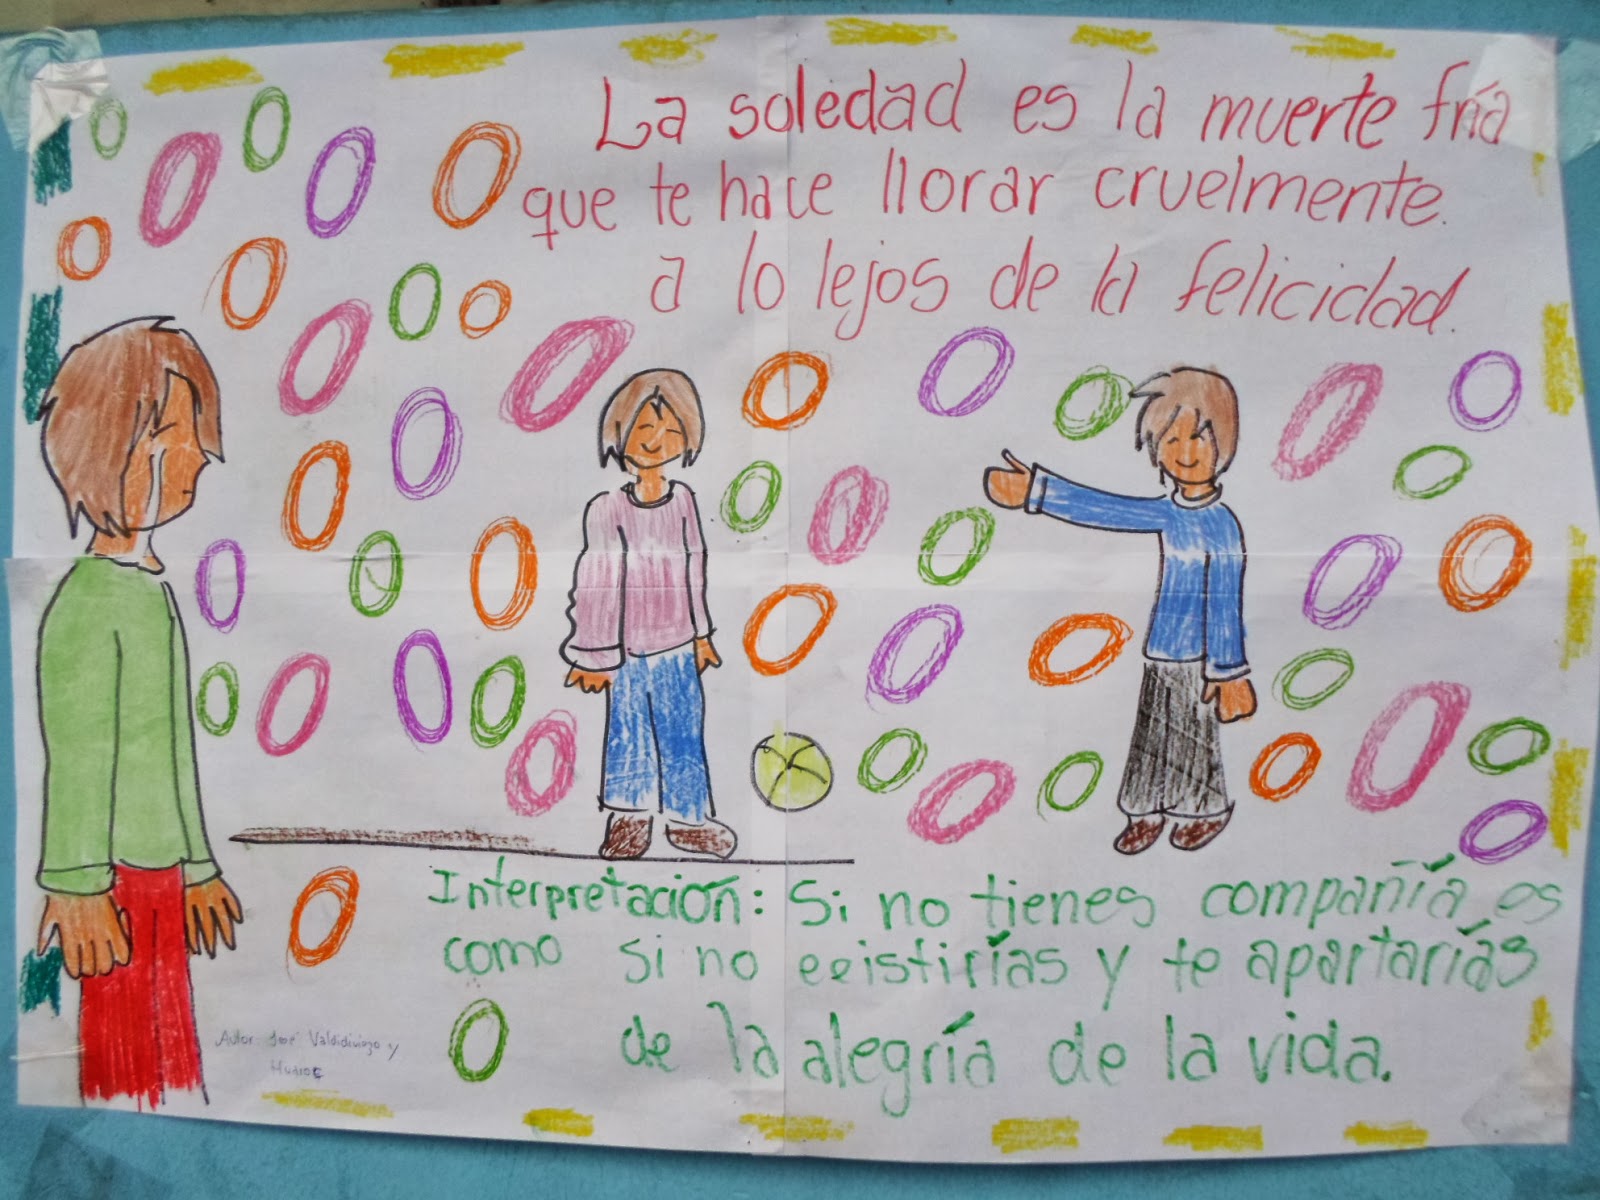 La soledad es la muerte fría
que te hace llorar cruelmente.
a lo lejos de la felicidad.
Interpretación: Si no tienes compañía es
como si no eexistirías y te apartarías
de la alegría de la vida.
Autor: José Valdidiviezo y